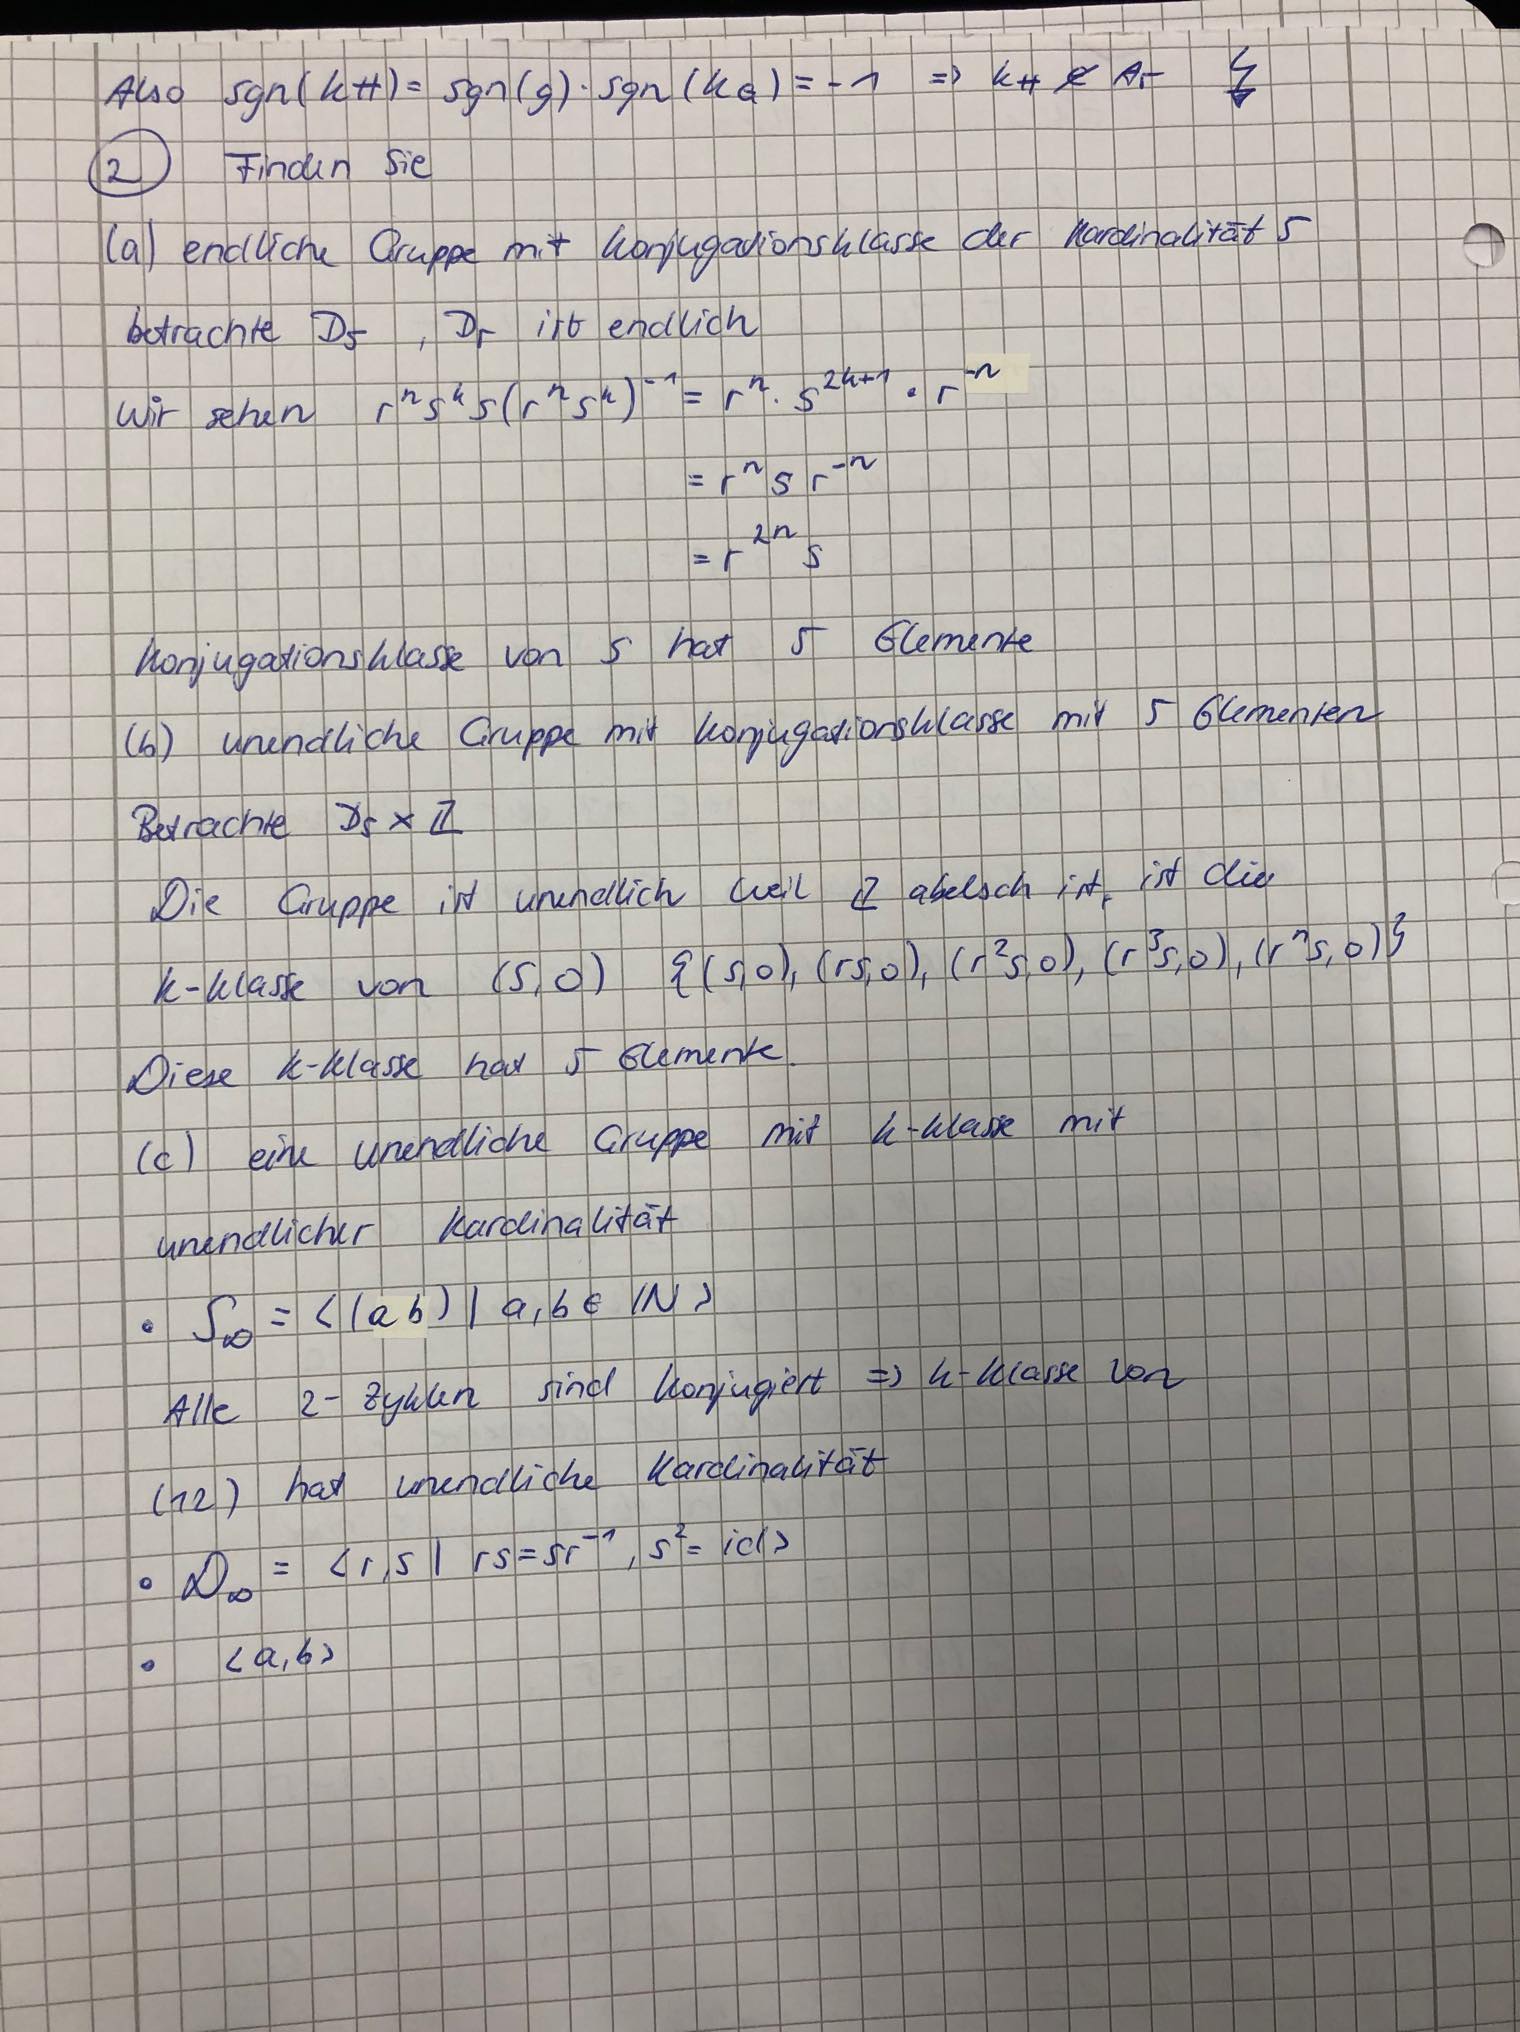 Also sgn(kH) = sgn(g) · sgn(kG) = -1 => kH ∉ A5 ↯
② Finden Sie
(a) endliche Gruppe mit Konjugationsklasse der Kardinalität 5
betrachte D5 , D5 ist endlich
Wir sehen r^n s^k s (r^n s^k)^-1 = r^n · s^2k+1 · r^-n
= r^n s r^-n
= r^2n s
Konjugationsklasse von s hat 5 Elemente
(b) unendliche Gruppe mit Konjugationsklasse mit 5 Elementen
Betrachte D5 × ℤ
Die Gruppe ist unendlich weil ℤ abelsch ist, ist die
K-Klasse von (s,0) {(s,0), (rs,0), (r^2s,0), (r^3s,0), (r^4s,0)}
Diese K-Klasse hat 5 Elemente.
(c) eine unendliche Gruppe mit K-Klasse mit
unendlicher Kardinalität
• S∞ = <(a b) | a,b ∈ ℕ>
Alle 2-Zyklen sind konjugiert => K-Klasse von
(12) hat unendliche Kardinalität
• D∞ = <r,s | rs = sr^-1, s^2 = id>
• <a,b>